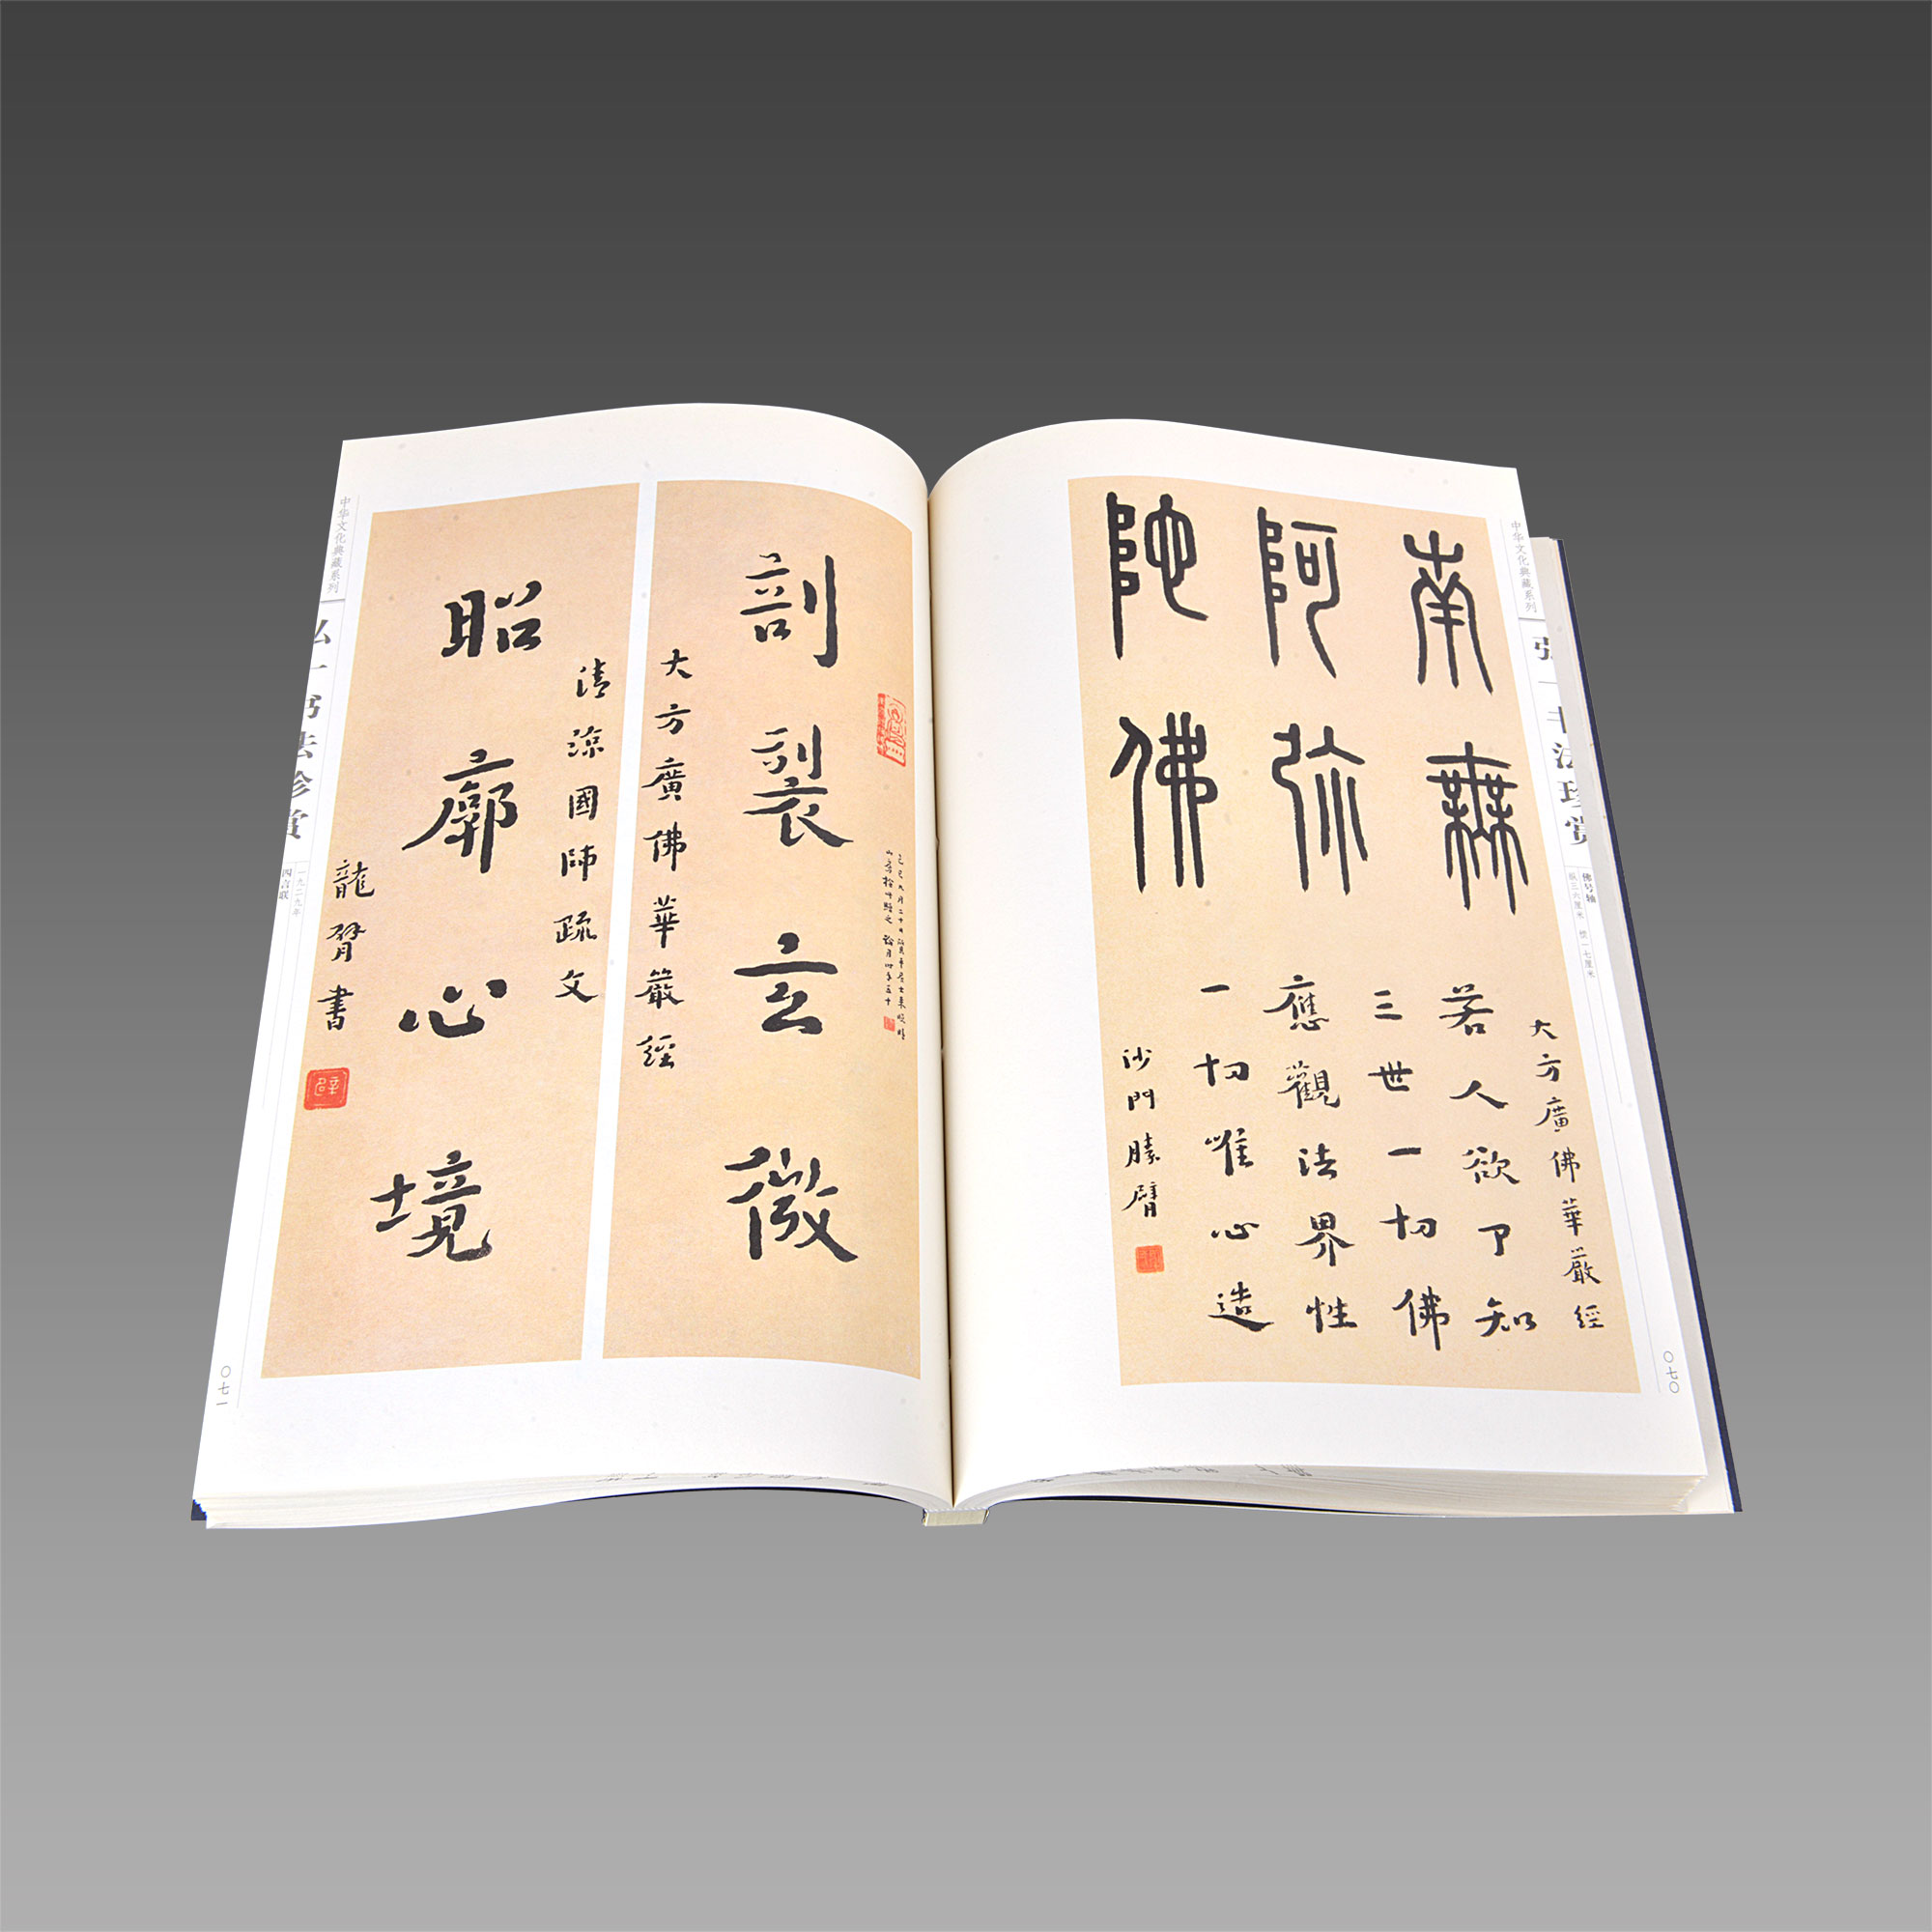 中华文化典藏系列
弘一书法珍赏
佛号轴
纵三六厘米 横一七厘米
〇七〇
南無
阿弥
陀佛
大方廣佛華嚴經
若人欲了知
三世一切佛
應觀法界性
一切唯心造
沙門勝臂
剖裂玄微
大方廣佛華嚴經
昭廓心境
清涼國師疏文
龍臂書
中华文化典藏系列
弘一书法珍赏
一九二九年
四言联
〇七一